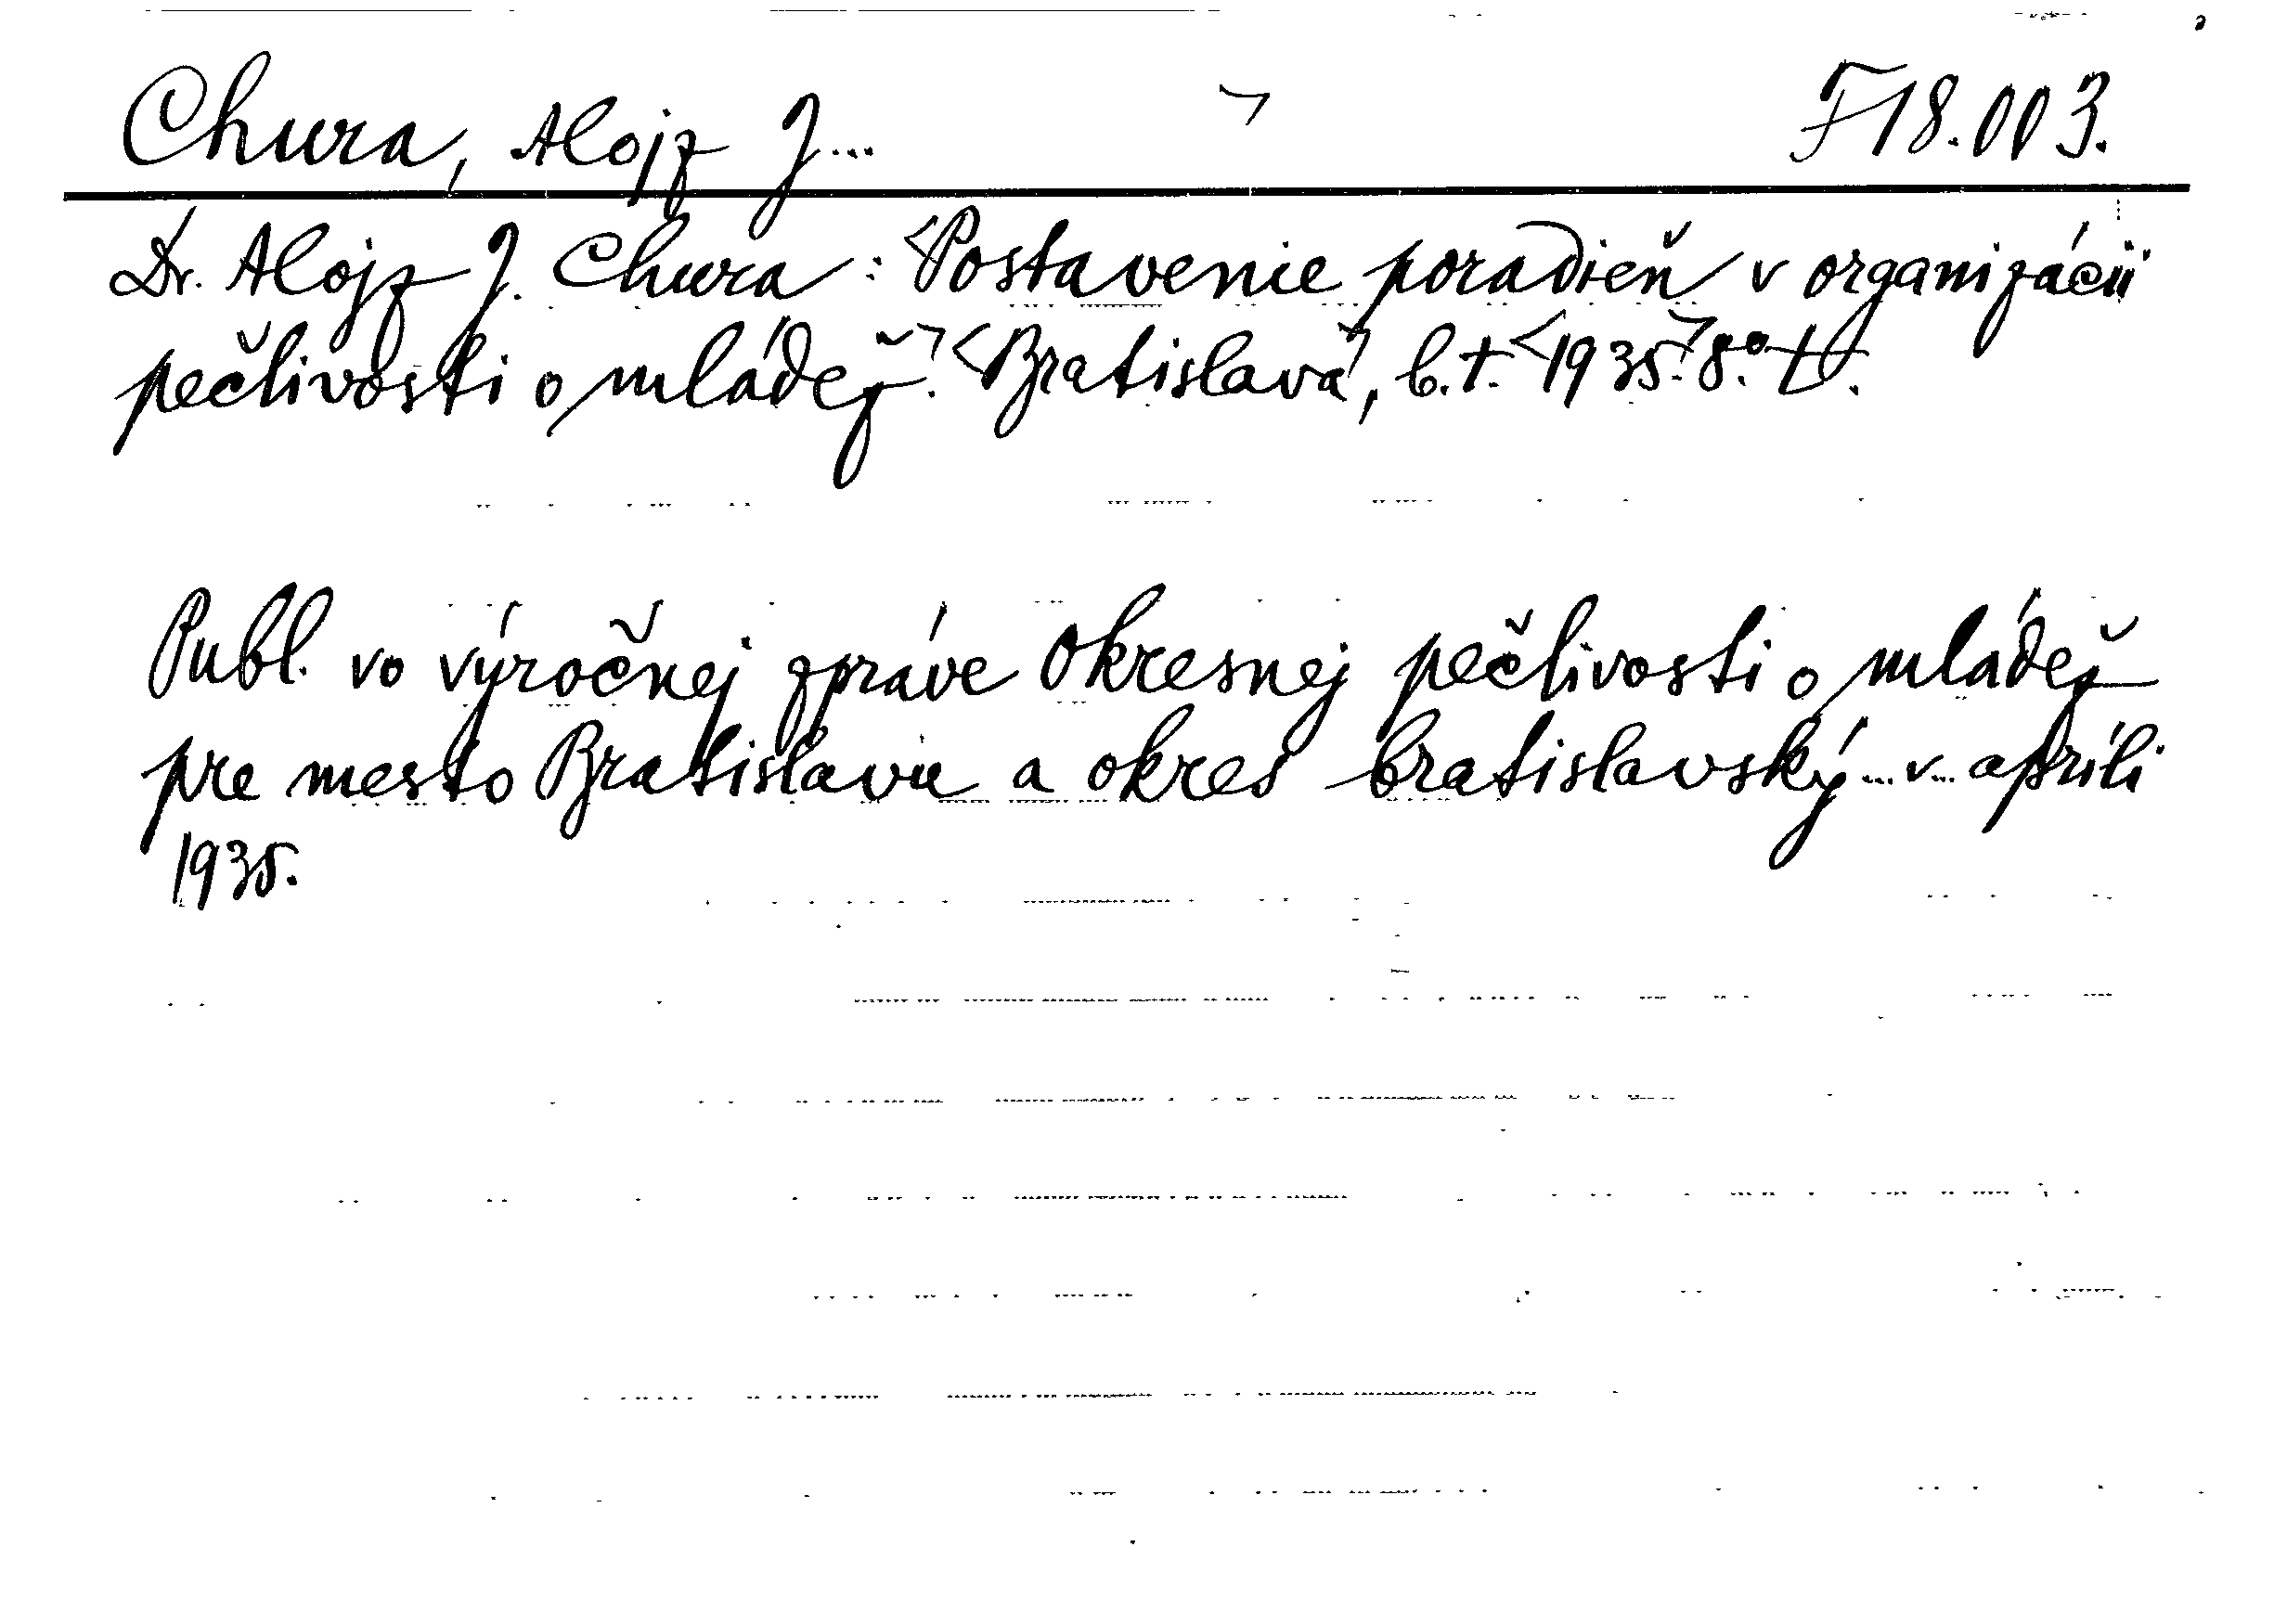 Chura, Alojz J... F 18.003.
Dr. Alojz J. Chura: <Postavenie poradieň v organizácii
pečlivosti o mládež.> <Bratislava>, b.t. <1935.> 8.°
Publ. vo výročnej zpráve Okresnej pečlivosti o mládež
pre mesto Bratislavu a okres bratislavský ... v ... apríli
1935.